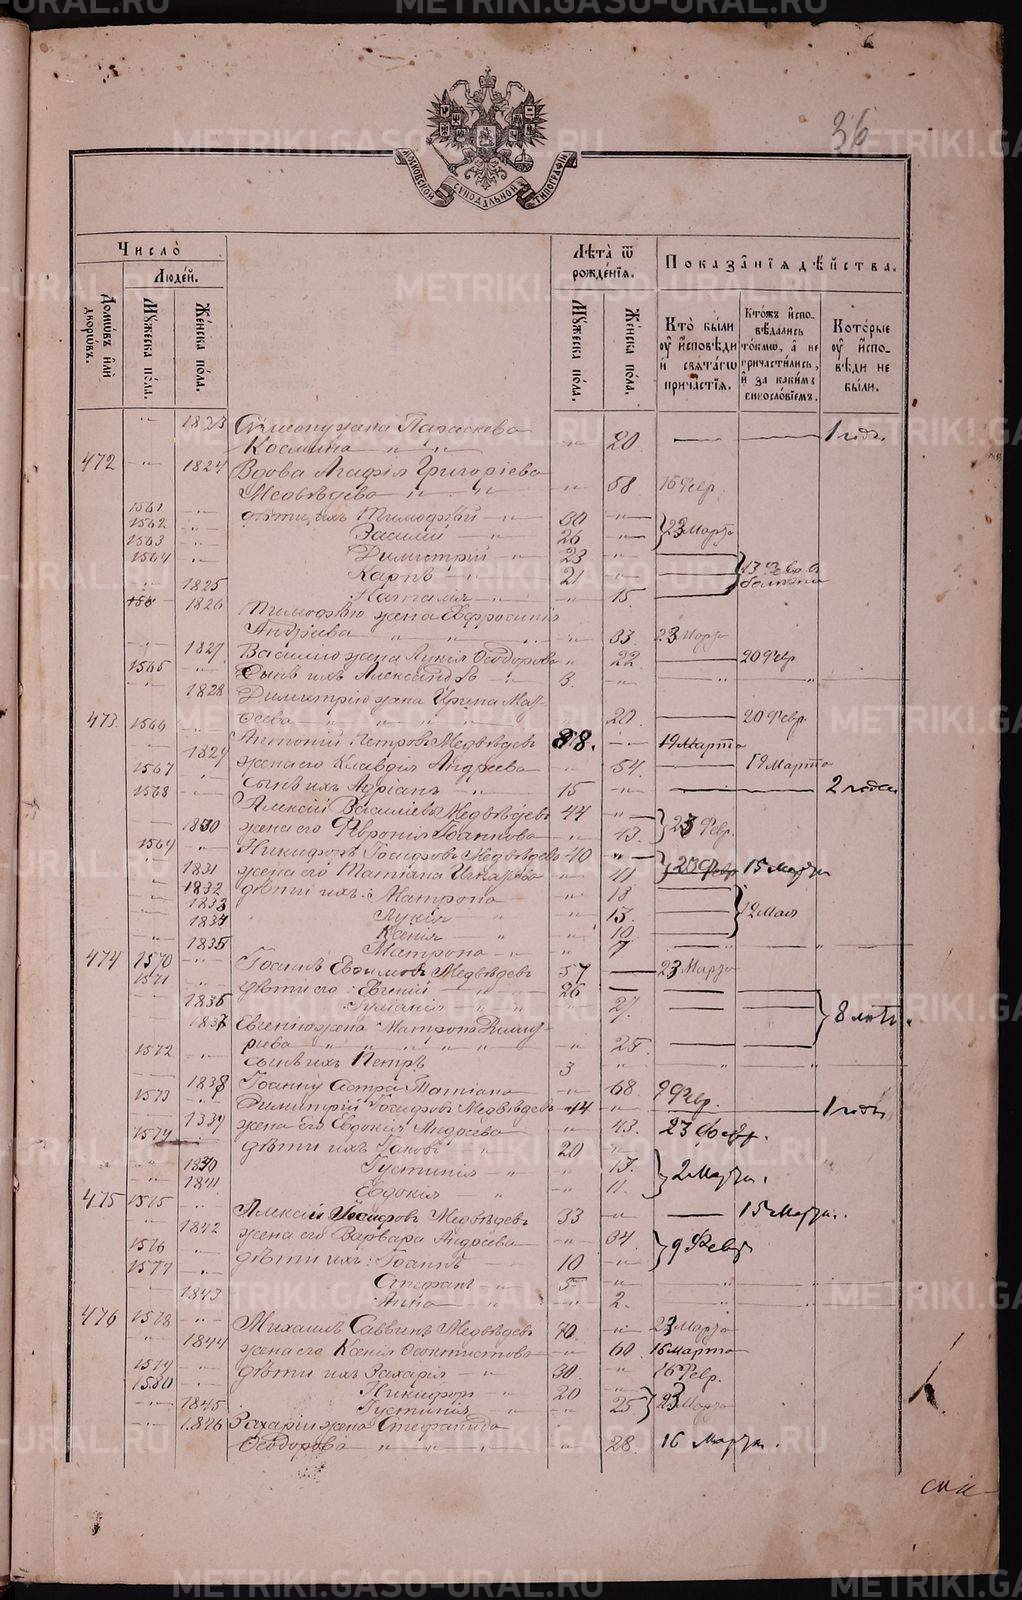 36
МОСКОВСКОЙ СѴНОДАЛЬНОЙ ТИПОГРАФІИ
Число̀
Людéй.
Домѡвъ и҆лѝ дворѡвъ.
Мꙋжеска по́ла.
Же́нска по́ла.
Лѣ́та ѿ рожде́нїѧ.
Мꙋжеска по́ла.
Же́нска по́ла.
Показа̂нїѧ дѣ́йства.
Кто̀ бы́ли оу҆ и҆́сповѣди и҆ свѧта́гѡ прича́стїѧ.
Кто́жъ и҆спо-вѣ́дались то́кмѡ, а҆ не причасти́лись, и҆ за каки́мъ винослоо́вїемъ.
Кото́рые оу҆ и҆́спо-вѣди не бы́ли.
1823 жена Параскева
Космина " " 20 — — 1 годъ
472 1824 Вдова Агафія Григоріева
Медвѣдева 58 16 Февр.
1561 дѣти ихъ Тимофѣй 30
1562 Василій 26 23 Марта
1563 Димитрій 23
1564 Карпъ 21
1825 Наталія 15
1826 Тимофѣю жена Евфросинія
Андріева 33 23 Марта
1827 Василію жена Лукія Ѳеодорова 22 20 Февр
1565 Сынъ ихъ Александръ 3
1828 Димитрію жена Ирина
20 20 Февр.
473 1566 Антоній Петровъ Медвѣдевъ 88. 19 Марта
1829 жена его Клавдія Андреева 54 19 Марта
1567 сынъ ихъ Адріанъ 15 2 года
1568 Алексій Василіевъ Медвѣдевъ 44
1830 жена его Ѳевронія Іоаннова 43 23 Февр.
1569 Никифоръ Іосифовъ Медвѣдевъ 40
1831 жена его Татіана 41 15 Марта
1832 дѣти ихъ: Матрона 18
1833 Лукія 13 12 Мая
1834 Ксенія 10
1835 Матрона 7
474 1570 Іоаннъ Евфимовъ Медвѣдевъ 57 — 23 Марта
1571 дѣти его: Евгеній 26
1836 27
1837 Евгенію жена Матрона Димит-
ріева 25 8 лѣтъ.
1572 сынъ ихъ Петръ 3
1838 Іоанну сестра Татіана 68 9 Февр.
1573 Димитрій Іосифовъ Медвѣдевъ 44 1 годъ
1839 жена его Евдокія Андреева 43. 23 Февр.
1574 дѣти ихъ Іаковъ 20
1830 Іустинія 17
1841 Евдокія 11. 2 Марта.
475 1575 Алексій Іосифовъ Медвѣдевъ 33 15 Марта.
1842 жена его Варвара Андреева 34
1576 дѣти ихъ: Іоаннъ 10 9 Февр
1577 Стефанъ 5
1843 Анна 2.
476 1578 Михаилъ Саввинъ Медвѣдевъ 70. 23 Марта
1844 жена его Ксенія Ѳеоктистова 60 16 Марта
1579 дѣти ихъ Захарія 30. 16 Февр.
1580 Никифоръ 20
1845 Іустинія 25 23 Марта
1846 Захаріи жена Стефанида
Ѳеодорова 28. 16 Марта.
METRIKI.GASO-URAL.RU